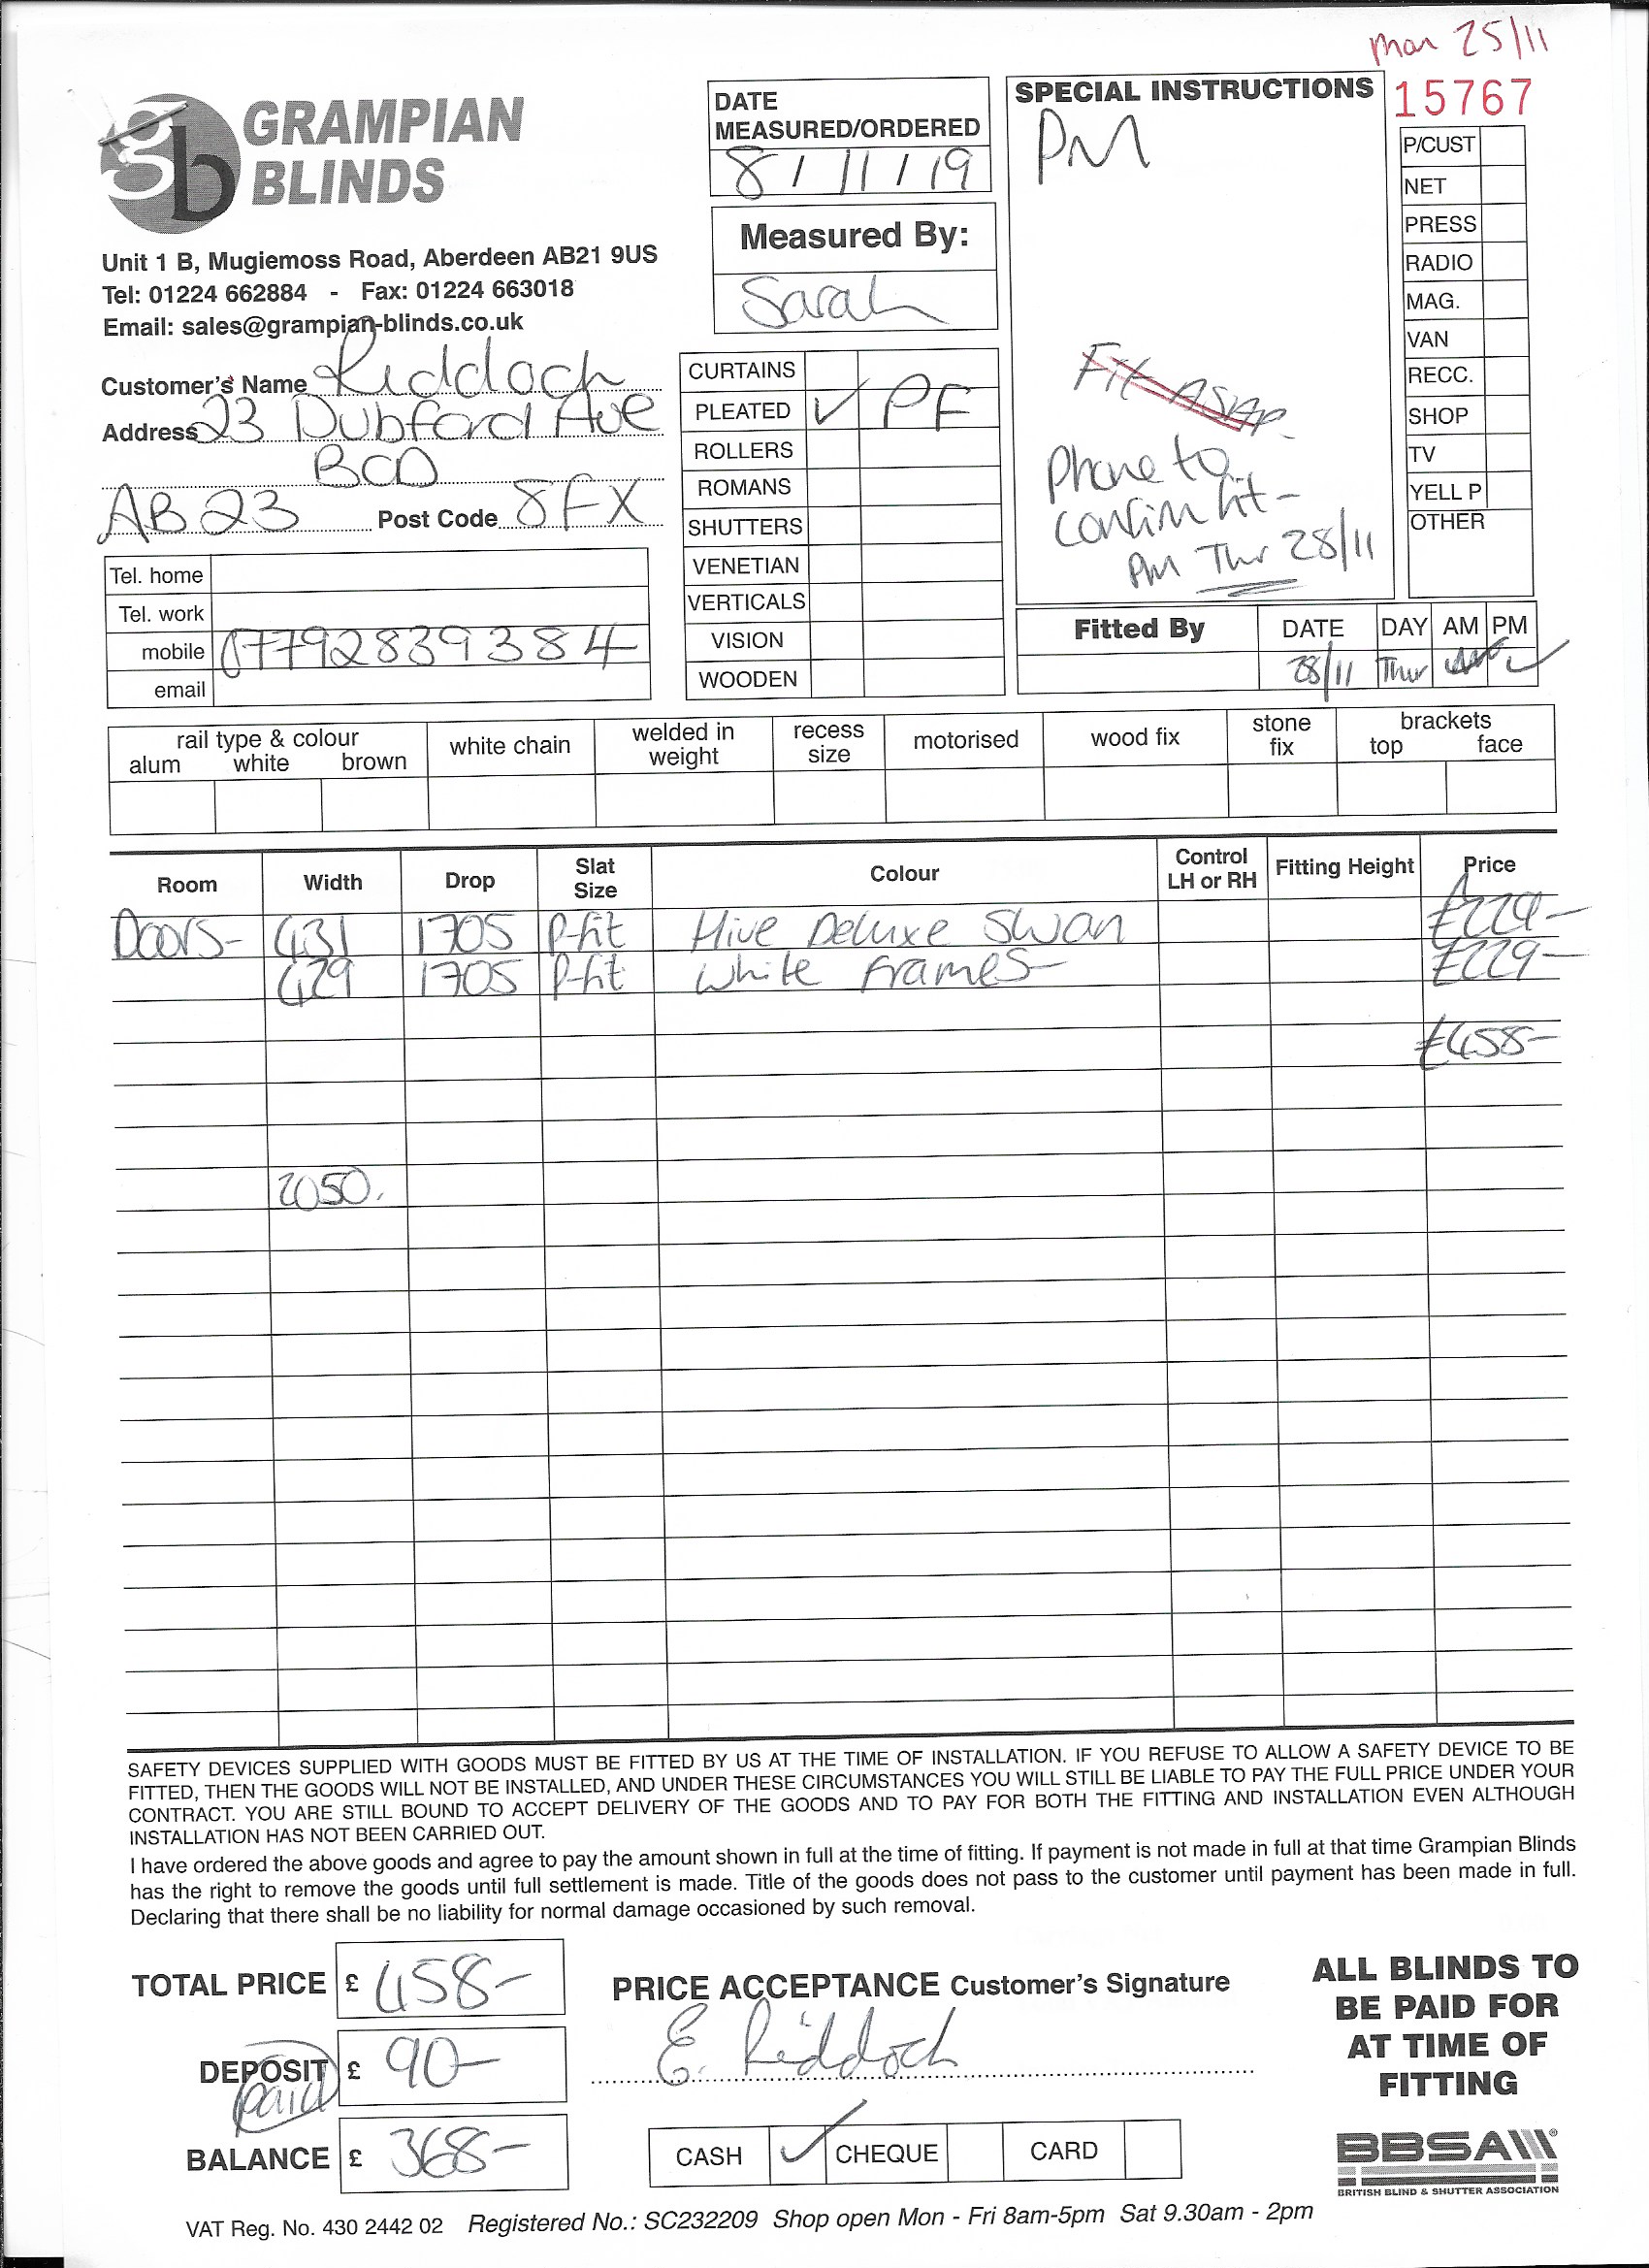 Mon 25/11
15767
gb GRAMPIAN
BLINDS
Unit 1 B, Mugiemoss Road, Aberdeen AB21 9US
Tel: 01224 662884 - Fax: 01224 663018
Email: sales@grampian-blinds.co.uk
Customer's Name Riddoch
Address 23 Dubford Ave
BOD
AB23 Post Code 8FX
Tel. home
Tel. work
mobile 07792839384
email
DATE
MEASURED/ORDERED
8/11/19
Measured By:
Sarah
CURTAINS
PLEATED ✓ PF
ROLLERS
ROMANS
SHUTTERS
VENETIAN
VERTICALS
VISION
WOODEN
SPECIAL INSTRUCTIONS
PM
Fit ASAP.
Phone to
confirm fit-
PM Thr 28/11
P/CUST
NET
PRESS
RADIO
MAG.
VAN
RECC.
SHOP
TV
YELL P
OTHER
Fitted By DATE DAY AM PM
28/11 Thur ✓
rail type & colour white chain welded in weight recess size motorised wood fix stone fix brackets
alum white brown top face
Room Width Drop Slat Size Colour Control LH or RH Fitting Height Price
Doors- 431 1705 P-fit Hive Deluxe Swan £229-
429 1705 P-fit White Frames- £229-
£458-
2050.
SAFETY DEVICES SUPPLIED WITH GOODS MUST BE FITTED BY US AT THE TIME OF INSTALLATION. IF YOU REFUSE TO ALLOW A SAFETY DEVICE TO BE
FITTED, THEN THE GOODS WILL NOT BE INSTALLED, AND UNDER THESE CIRCUMSTANCES YOU WILL STILL BE LIABLE TO PAY THE FULL PRICE UNDER YOUR
CONTRACT. YOU ARE STILL BOUND TO ACCEPT DELIVERY OF THE GOODS AND TO PAY FOR BOTH THE FITTING AND INSTALLATION EVEN ALTHOUGH
INSTALLATION HAS NOT BEEN CARRIED OUT.
I have ordered the above goods and agree to pay the amount shown in full at the time of fitting. If payment is not made in full at that time Grampian Blinds
has the right to remove the goods until full settlement is made. Title of the goods does not pass to the customer until payment has been made in full.
Declaring that there shall be no liability for normal damage occasioned by such removal.
TOTAL PRICE £ 458-
DEPOSIT £ 90-
paid
BALANCE £ 368-
PRICE ACCEPTANCE Customer's Signature
E. Riddoch
CASH ✓ CHEQUE CARD
ALL BLINDS TO
BE PAID FOR
AT TIME OF
FITTING
BBSA
BRITISH BLIND & SHUTTER ASSOCIATION
VAT Reg. No. 430 2442 02 Registered No.: SC232209 Shop open Mon - Fri 8am-5pm Sat 9.30am - 2pm